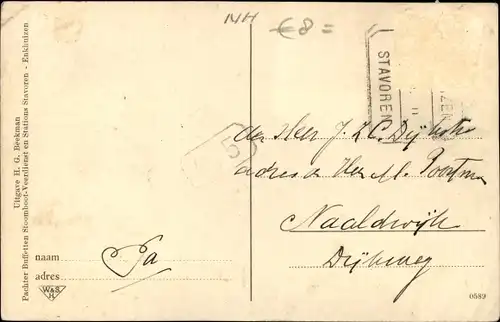 NH
€8=
Uitgave H. G. Beekman
Pachter Buffetten Stoomboot-Veerdienst en Stations Stavoren - Enkhuizen
STAVOREN
ZEN
5
den Heer J. L. C. Dijk
adres Heer M. Poort
Naaldwijk
Dijkweg
naam Pa
adres
W&S
H
0589